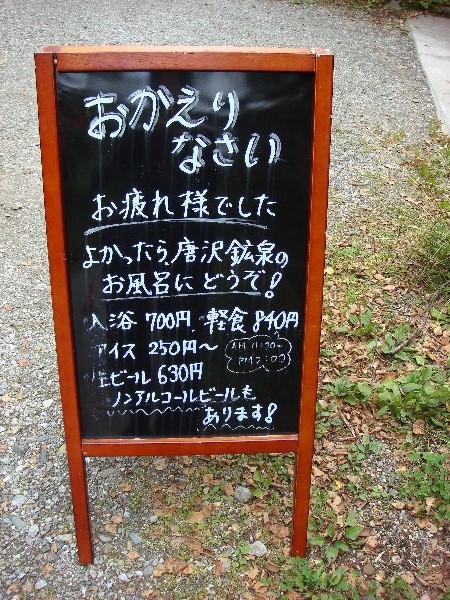 おかえり
なさい
お疲れ様でした
よかったら、唐沢鉱泉の
お風呂にどうぞ!
入浴 700円、軽食 840円
アイス 250円〜
生ビール 630円
ノンアルコールビールも
あります!